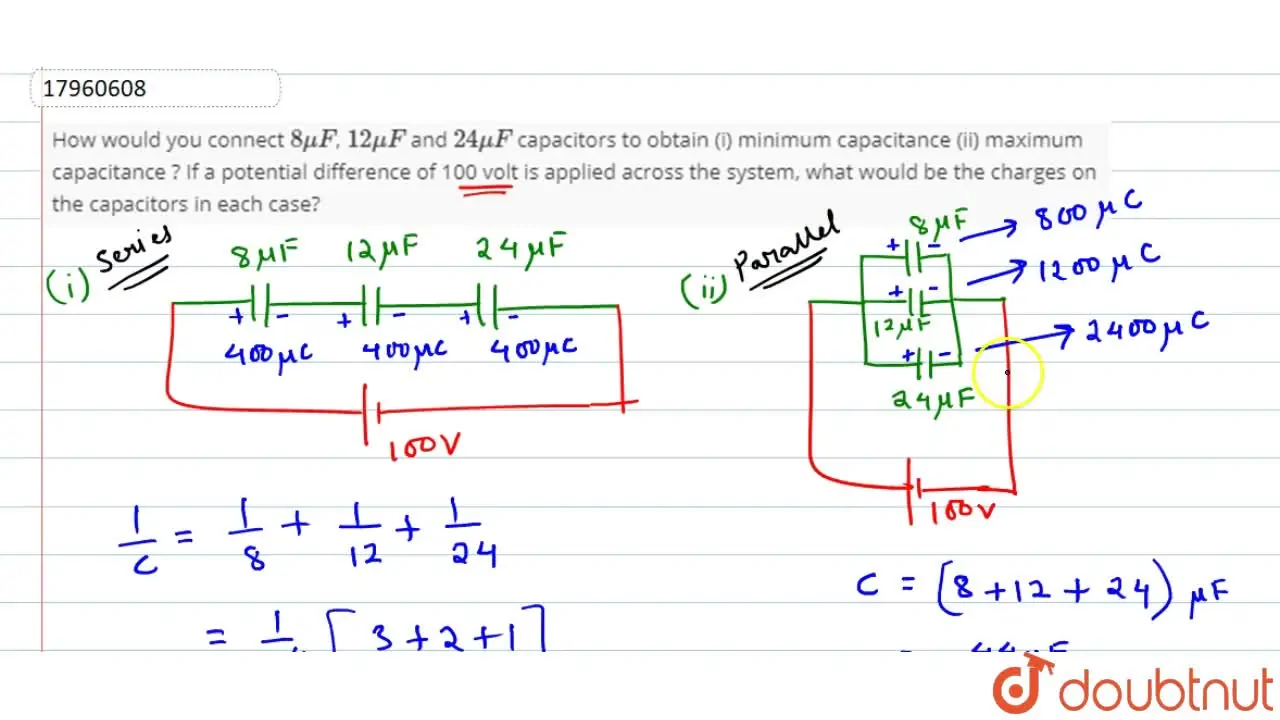 17960608
How would you connect 8μF, 12μF and 24μF capacitors to obtain (i) minimum capacitance (ii) maximum
capacitance ? If a potential difference of 100 volt is applied across the system, what would be the charges on
the capacitors in each case?
(i) Series
8μF 12μF 24μF
+ - + - + -
400μC 400μC 400μC
100V
1/C = 1/8 + 1/12 + 1/24
= [3+2+1]
(ii) Parallel
8μF 800μC
+ -
1200μC
+ -
12μF
2400μC
+ -
24μF
100V
C = (8+12+24) μF
= 44μF
doubtnut